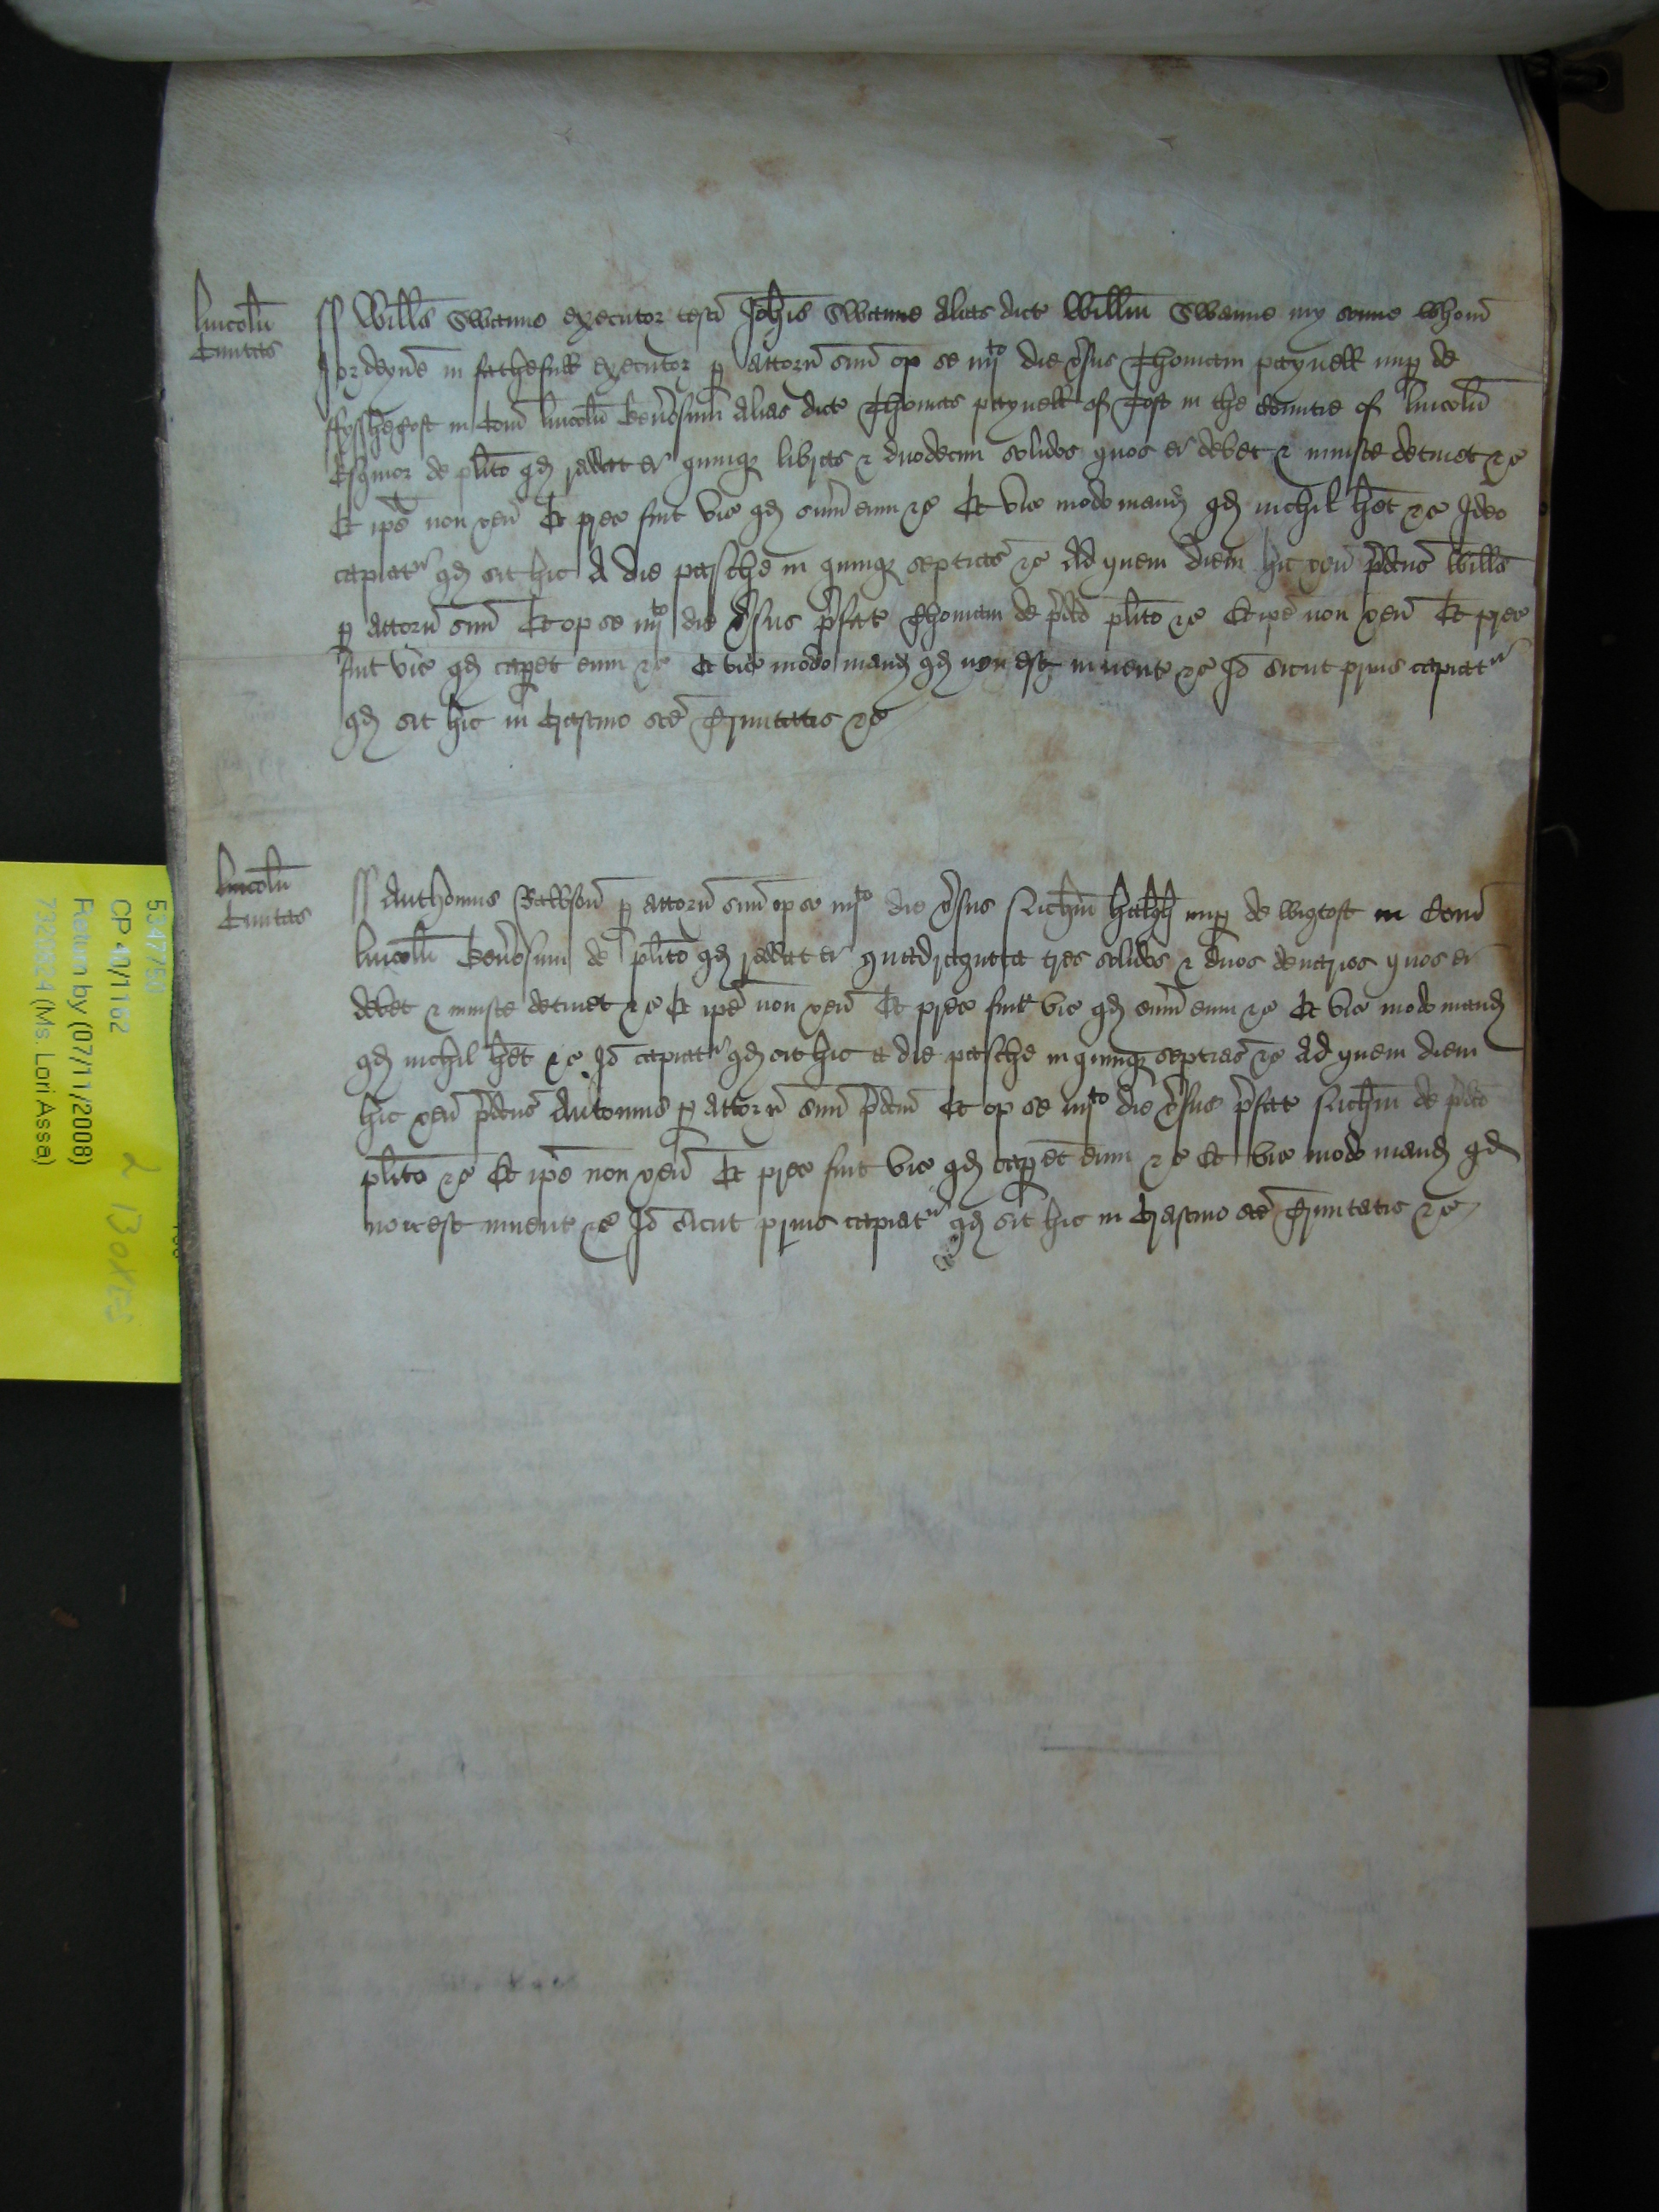 lincoln̄
Ciuitas
ss Willƨ Swanne executor testī Joh̄is Swanne alias dict̄ Willm̄ Swanne my sonne whom̄
I ordeyne m fathefull executor p attorn̄ suū op se iiijto die v̄sus Thomam paynell nup de
ffysshetoft in Com̄ lincoln̄ Gen̄osum alias dict̄ Thomas paynell of Toft in the Countie of lincoln̄
Esquior de pl̄ito qd reddat ei quinq libras & duodecim solidos quos ei debet & iniuste detinet &c
Et ip̄e non ven̄ Et prec̄ fuit vic̄ qd sum̄ eum &c Et vic̄ modo mand qd nichil h̄et &c Ideo
capiatr qd sit hic A die pasche in quinq septīas &c Ad quem diem hic ven̄ p̄dcūs Willƨ
p attorn̄ suū Et op se iiijto die v̄sus p̄fat̄ Thomam de p̄dc̄o pl̄ito &c Et ip̄e non ven̄ Et prec̄
fuit vic̄ qd capet eum &c Et vic̄ modo mand qd non est inuent̄ &c Id̄ sicut prius capiatr
qd sit hic in Crastino sc̄e Trinitatis &c
lincoln̄
Ciuitas
ss Anthonius Rawson̄ p attorn̄ suū op se iiijto die v̄sus Ric̄hm̄ nup de wigtoft in Com̄
lincoln̄ Gen̄osum de pl̄ito qd reddat ei quadraginta tres solidos & duos denarios quos ei
debet & iniuste detinet &c Et ip̄e non ven̄ Et prec̄ fuit vic̄ qd sum̄ eum &c Et vic̄ modo mand
qd nichil h̄et &c Id̄ capiatr qd sit hic a die pasche in quinq septīas &c Ad quem diem
hic ven̄ p̄dcūs Antonius p attorn̄ suū p̄dcm̄ Et op se iiijto die v̄sus p̄fat̄ Ric̄hm̄ de p̄dc̄o
pl̄ito &c Et ip̄e non ven̄ Et prec̄ fuit vic̄ qd capet eum &c Et vic̄ modo mand qd
non est inuent̄ &c Id̄ sicut prius capiatr qd sit hic in Crastino sc̄e Trinitatis &c
5347750
CP 40/1162
Return by (07/11/2008)
7329824 (Ms. Lori Assa)
2 BOXES